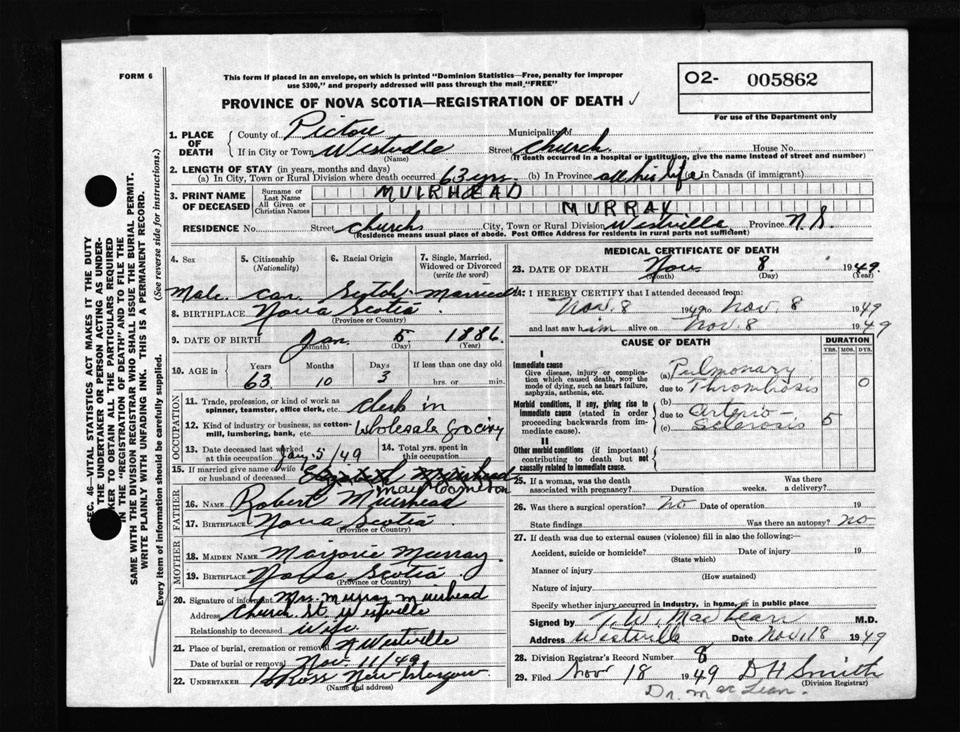 FORM 6
This form if placed in an envelope, on which is printed "Dominion Statistics—Free, penalty for improper
use $300," and properly addressed will pass through the mail "FREE"
O2- 005862
For use of the Department only
PROVINCE OF NOVA SCOTIA—REGISTRATION OF DEATH ✓
1. PLACE OF DEATH { County of Pictou Municipality of
If in City or Town Westville (Name) Street Church House No.
(If death occurred in a hospital or institution, give the name instead of street and number)
2. LENGTH OF STAY (in years, months and days)
(a) In City, Town or Rural Division where death occurred 63 yrs. (b) In Province all his life (c) In Canada (if immigrant)
3. PRINT NAME OF DECEASED { Surname or Last Name MUIRHEAD
All Given or Christian Names MURRAY
RESIDENCE No. Street Church City, Town or Rural Division Westville Province N.S.
(Residence means usual place of abode. Post Office Address for residents in rural parts not sufficient)
4. Sex 5. Citizenship (Nationality) 6. Racial Origin 7. Single, Married, Widowed or Divorced (write the word)
Male. Can. Scotch Married
8. BIRTHPLACE Nova Scotia
(Province or Country)
9. DATE OF BIRTH Jan. 5 1886
(Month) (Day) (Year)
10. AGE in { Years 63 Months 10 Days 3 If less than one day old hrs. or min.
OCCUPATION
11. Trade, profession, or kind of work as spinner, teamster, office clerk, etc. Clerk in
12. Kind of industry or business, as cotton-mill, lumbering, bank, etc. Wholesale Grocery
13. Date deceased last worked at this occupation Jan. 5/49 14. Total yrs. spent in this occupation
15. If married give name of wife or husband of deceased Elizabeth Muirhead
May
FATHER
16. NAME Robert Muirhead
17. BIRTHPLACE Nova Scotia
(Province or Country)
MOTHER
18. MAIDEN NAME Marjorie Murray
19. BIRTHPLACE Nova Scotia
(Province or Country)
20. Signature of informant Mrs. Murray Muirhead
Address Church St. Westville
Relationship to deceased Wife
21. Place of burial, cremation or removal Westville
Date of burial or removal Nov 11/49
22. UNDERTAKER Ross New Glasgow
(Name and address)
MEDICAL CERTIFICATE OF DEATH
23. DATE OF DEATH Nov 8 1949
(Month) (Day)
24. I HEREBY CERTIFY that I attended deceased from:
Nov. 8 1949 to Nov. 8 1949
and last saw him alive on Nov. 8 1949
CAUSE OF DEATH DURATION
YRS. MOS. DYS.
I
Immediate cause
Give disease, injury or complication which caused death, NOT the mode of dying, such as heart failure, asphyxia, asthenia, etc.
(a) Pulmonary
due to Thrombosis 0
Morbid conditions, if any, giving rise to immediate cause (stated in order proceeding backwards from immediate cause).
(b)
due to Arterio-
(c) Sclerosis 5
II
Other morbid conditions (if important) contributing to death but not causally related to immediate cause.
25. If a woman, was the death associated with pregnancy? Duration weeks. Was there a delivery?
26. Was there a surgical operation? No Date of operation 19
State findings Was there an autopsy? No
27. If death was due to external causes (violence) fill in also the following:
Accident, suicide or homicide? Date of injury 19
(State which)
Manner of injury
(How sustained)
Nature of injury
Specify whether injury occurred in industry, in home, or in public place
Signed by T. W. MacLean M.D.
Address Westville Date Nov. 18 1949
28. Division Registrar's Record Number 8
29. Filed Nov 18 1949 D H Smith
(Division Registrar)
Dr. MacLean.
SEC. 46—VITAL STATISTICS ACT MAKES IT THE DUTY
OF THE UNDERTAKER OR PERSON ACTING AS UNDER-
TAKER TO OBTAIN ALL THE PARTICULARS REQUIRED
IN THE "REGISTRATION OF DEATH" AND TO FILE THE
SAME WITH THE DIVISION REGISTRAR WHO SHALL ISSUE THE BURIAL PERMIT.
WRITE PLAINLY WITH UNFADING INK. THIS IS A PERMANENT RECORD.
Every item of information should be carefully supplied. (See reverse side for instructions.)